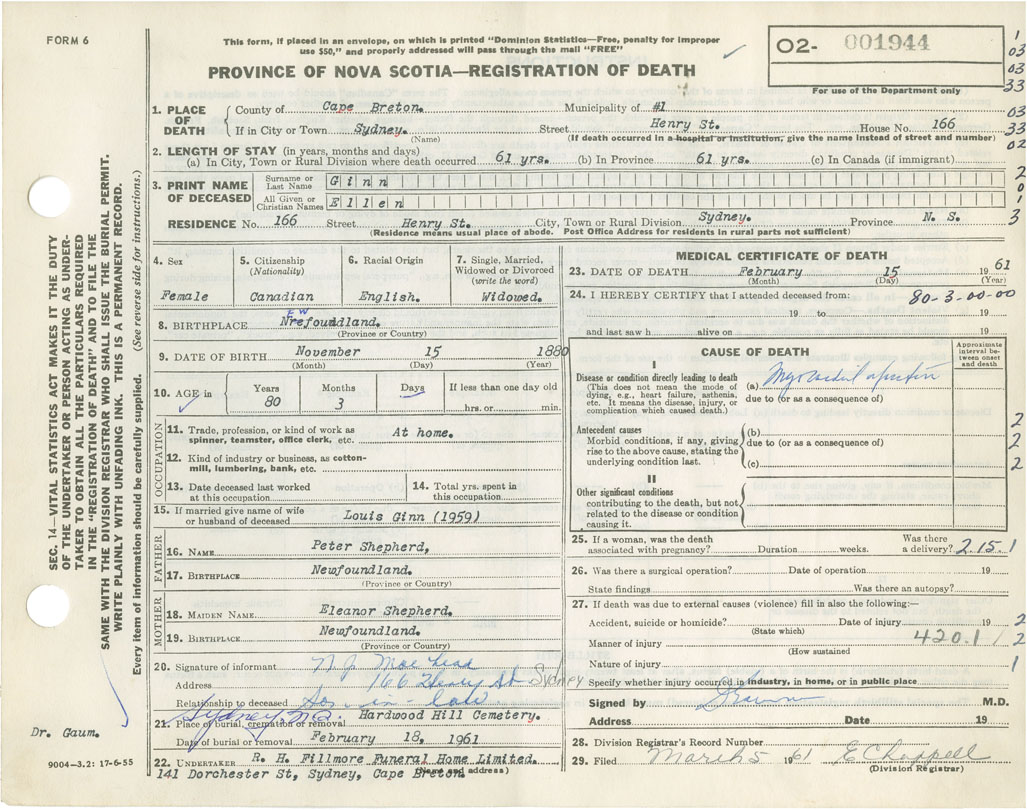 FORM 6
This form, if placed in an envelope, on which is printed "Dominion Statistics—Free, penalty for improper
use $50," and properly addressed will pass through the mail "FREE"
PROVINCE OF NOVA SCOTIA—REGISTRATION OF DEATH
O2- 001944
For use of the Department only
1
03
03
33
03
33
02
2
0
1
3
1. PLACE OF DEATH
County of Cape Breton. Municipality of #1
If in City or Town Sydney. Street Henry St. House No. 166
(Name) (If death occurred in a hospital or institution, give the name instead of street and number)
2. LENGTH OF STAY (in years, months and days)
(a) In City, Town or Rural Division where death occurred 61 yrs. (b) In Province 61 yrs. (c) In Canada (if immigrant)
3. PRINT NAME OF DECEASED
Surname or Last Name Ginn
All Given or Christian Names Ellen
RESIDENCE No. 166 Street Henry St. City, Town or Rural Division Sydney. Province N. S.
(Residence means usual place of abode. Post Office Address for residents in rural parts not sufficient)
4. Sex
Female
5. Citizenship
(Nationality)
Canadian
6. Racial Origin
English.
7. Single, Married,
Widowed or Divorced
(write the word)
Widowed.
8. BIRTHPLACE Nrefoundland.
EW
(Province or Country)
9. DATE OF BIRTH November 15 1880
(Month) (Day) (Year)
10. AGE in
Years Months Days If less than one day old
80 3 hrs. or min.
OCCUPATION
11. Trade, profession, or kind of work as
spinner, teamster, office clerk, etc. At home.
12. Kind of industry or business, as cotton-
mill, lumbering, bank, etc.
13. Date deceased last worked
at this occupation
14. Total yrs. spent in
this occupation
15. If married give name of wife
or husband of deceased Louis Ginn (1959)
FATHER
16. NAME Peter Shepherd,
17. BIRTHPLACE Newfoundland.
(Province or Country)
MOTHER
18. MAIDEN NAME Eleanor Shepherd.
19. BIRTHPLACE Newfoundland.
(Province or Country)
20. Signature of informant
Address 166 Henry St Sydney
Relationship to deceased Son-in-law.
Sydney N.S.
21. Place of burial, cremation or removal Hardwood Hill Cemetery.
Date of burial or removal February 18, 1961
22. UNDERTAKER R. H. Fillmore Funeral Home Limited.
(Name and address)
141 Dorchester St, Sydney, Cape Breton
MEDICAL CERTIFICATE OF DEATH
23. DATE OF DEATH February 15 1961
(Month) (Day) (Year)
24. I HEREBY CERTIFY that I attended deceased from: 80-3-00-00
19 to 19
and last saw h alive on 19
CAUSE OF DEATH
Approximate
interval be-
tween onset
and death
I
Disease or condition directly leading to death
(This does not mean the mode of
dying, e.g., heart failure, asthenia,
etc. It means the disease, injury, or
complication which caused death.)
(a) Myocardial
due to (or as a consequence of)
Antecedent causes
Morbid conditions, if any, giving
rise to the above cause, stating the
underlying condition last.
(b)
due to (or as a consequence of)
(c)
2
2
2
II
Other significant conditions
contributing to the death, but not
related to the disease or condition
causing it.
25. If a woman, was the death
associated with pregnancy? Duration weeks. Was there
a delivery? 2.15.1
26. Was there a surgical operation? Date of operation 19
State findings Was there an autopsy?
27. If death was due to external causes (violence) fill in also the following:—
Accident, suicide or homicide? Date of injury 19 2
(State which)
Manner of injury 420.1 / 2
(How sustained
Nature of injury 1
Specify whether injury occurred in industry, in home, or in public place
Signed by M.D.
Address Date 19
28. Division Registrar's Record Number
29. Filed March 5 1961 E Chappell
(Division Registrar)
SEC. 14—VITAL STATISTICS ACT MAKES IT THE DUTY
OF THE UNDERTAKER OR PERSON ACTING AS UNDER-
TAKER TO OBTAIN ALL THE PARTICULARS REQUIRED
IN THE "REGISTRATION OF DEATH" AND TO FILE THE
SAME WITH THE DIVISION REGISTRAR WHO SHALL ISSUE THE BURIAL PERMIT.
WRITE PLAINLY WITH UNFADING INK. THIS IS A PERMANENT RECORD.
Every item of information should be carefully supplied. (See reverse side for instructions.)
Dr. Gaum.
9004-3.2: 17-6-55